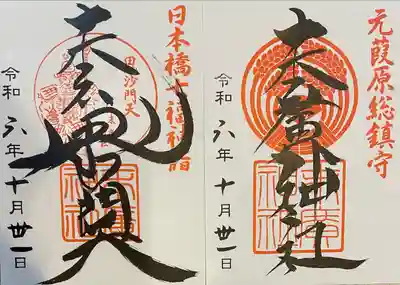 元葭原総鎮守
末廣神社
令和六年十月卅一日
日本橋七福神詣
毘沙門天
令和六年十月卅一日